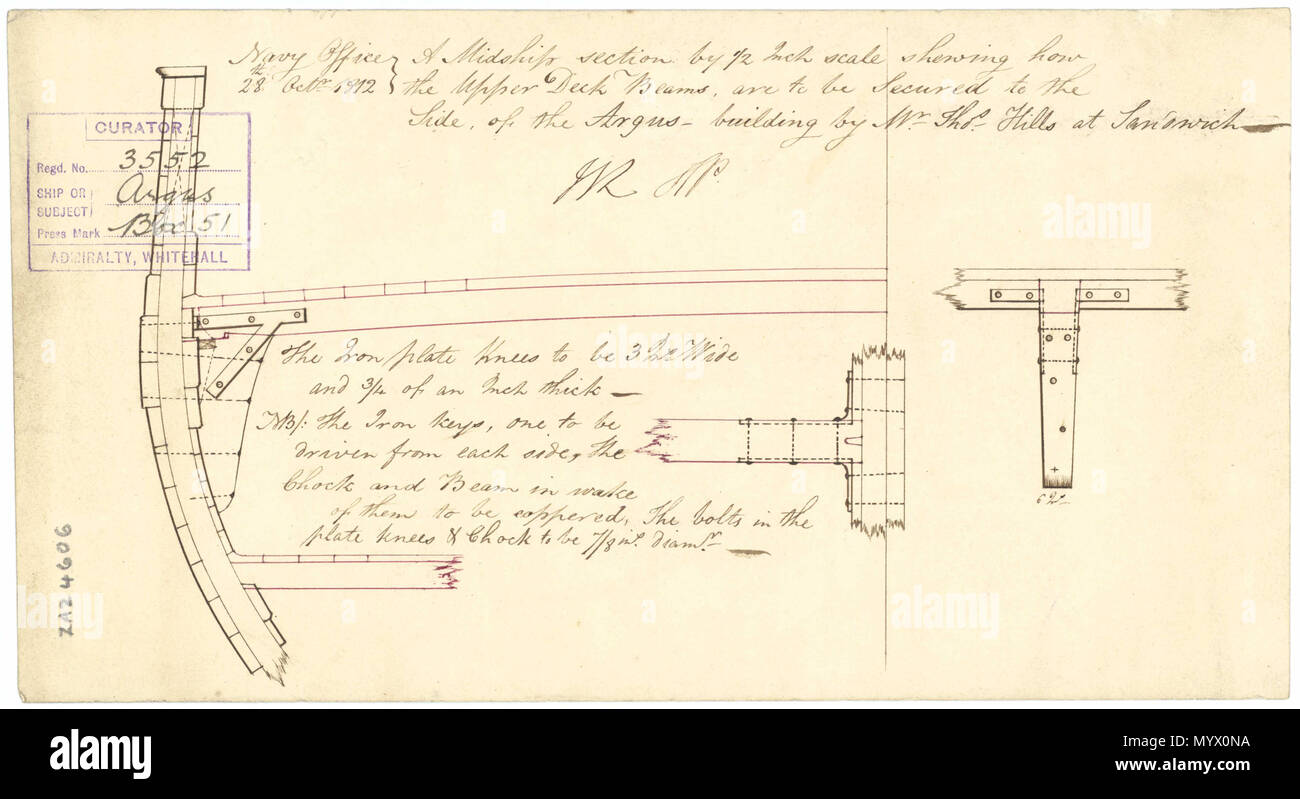 Navy Office } A Midship section by 1/2 Inch scale shewing how
28th Octr. 1812 } the Upper Deck Beams, are to be Secured to the
Side, of the Argus - building by Mr. Thos. Hills at Sandwich
CURATOR
Regd. No. 3552
SHIP OR SUBJECT } Argus
Press Mark Box 51
ADMIRALTY, WHITEHALL
The Iron plate Knees to be 3 In Wide
and 3/4 of an Inch thick
NB/: The Iron keys, one to be
driven from each side, the
Chock and Beam in wake
of them to be coppered, The bolts in the
plate knees & Chock to be 7/8 in. diamr.
ZAZ4606
a
alamy
alamy
www.alamy.com
Image ID: MYX0NA